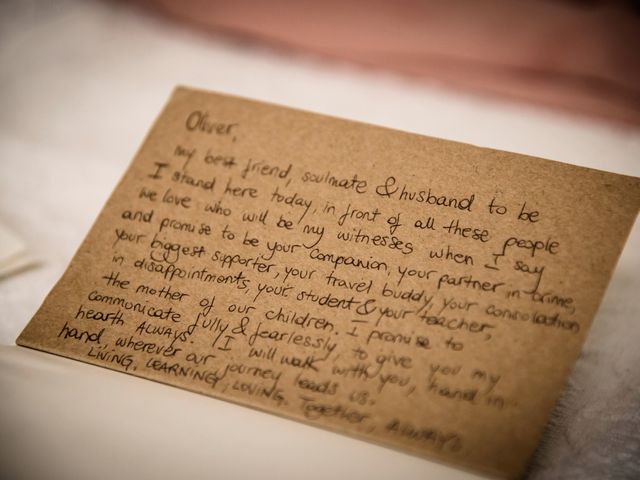 Oliver,
My best friend, soulmate & husband to be
I stand here today, in front of all these people
we love who will be my witnesses when I say
and promise to be your companion, your partner in crime,
your biggest supporter, your travel buddy, your consolation
in disappointments, your student & your teacher,
the mother of our children. I promise to
communicate fully & fearlessly, to give you my
hearth ALWAYS. I will walk with you, hand in
hand, wherever our journey leads us.
LIVING, LEARNING, LOVING. Together, ALWAYS.